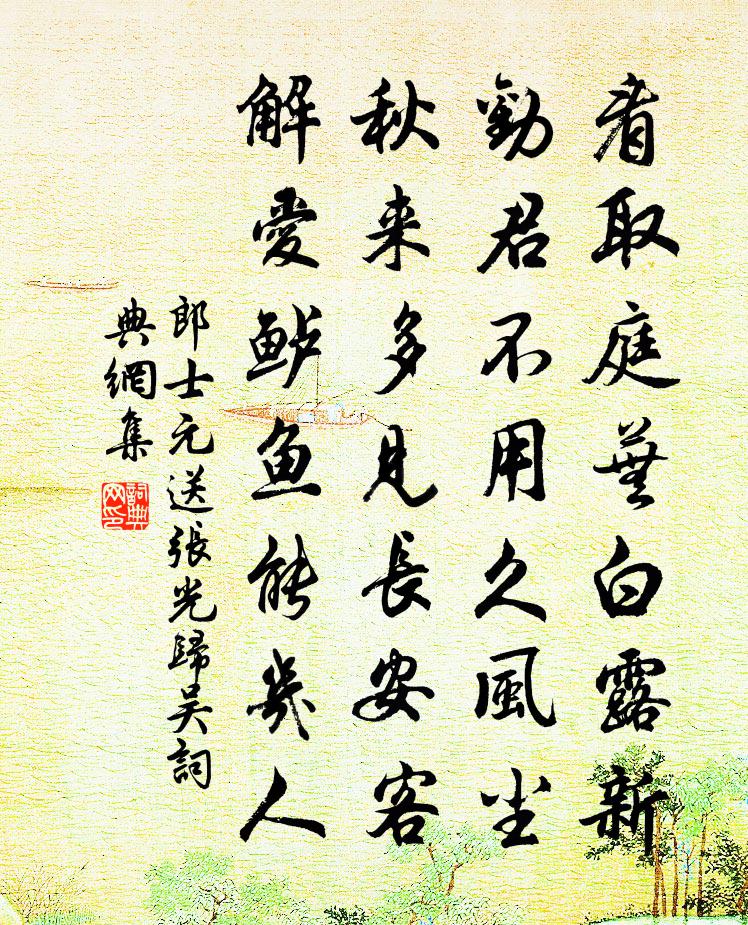 看取庭蕪白露新
勸君不用久風塵
秋来多見長安客
解愛鲈鱼能幾人
郎士元送張光歸吴詞
典網集
詞典网印